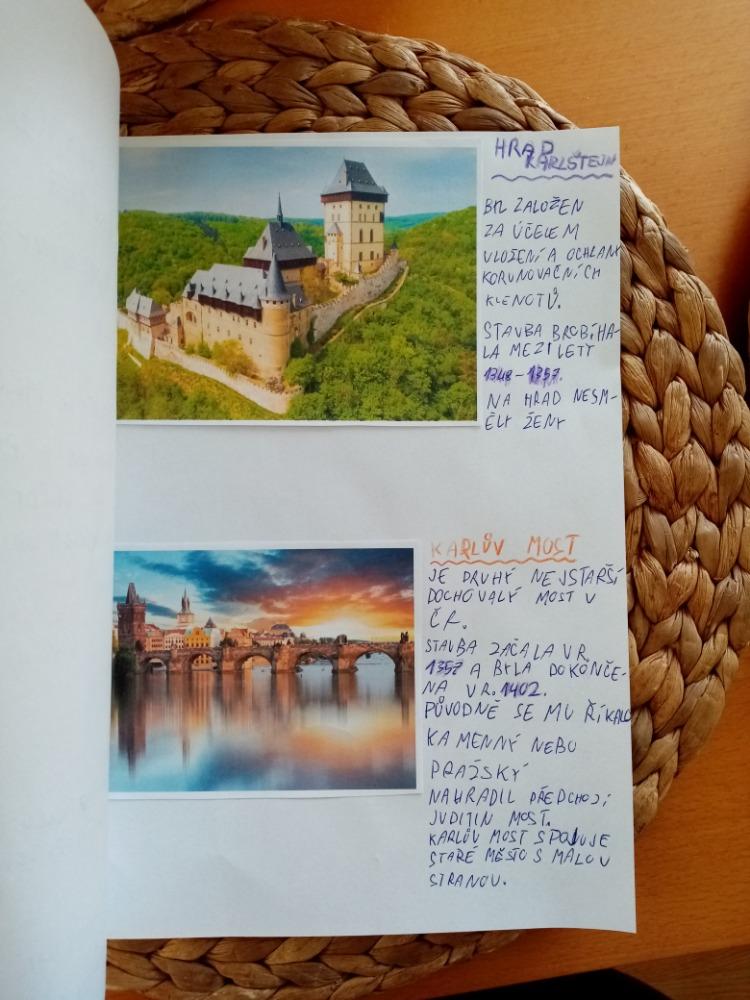 HRAD
KARLŠTEJN
BYL ZALOŽEN
ZA ÚČELEM
ULOŽENÍ A OCHRANY
KORUNOVAČNÍCH
KLENOTŮ.
STAVBA PROBÍHA-
LA MEZI LETY
1348-1357.
NA HRAD NESM-
ĚLY ŽENY
KARLŮV MOST
JE DRUHÝ NEJSTARŠÍ
DOCHOVALÝ MOST V
ČR.
STAVBA ZAČALA V R.
1357 A BYLA DOKONČE-
NA V R. 1402.
PŮVODNĚ SE MU ŘÍKALO
KAMENNÝ NEBO
PRAŽSKÝ
NAHRADIL PŘEDCHOZÍ
JUDITIN MOST.
KARLŮV MOST SPOJUJE
STARÉ MĚSTO S MALOU
STRANOU.